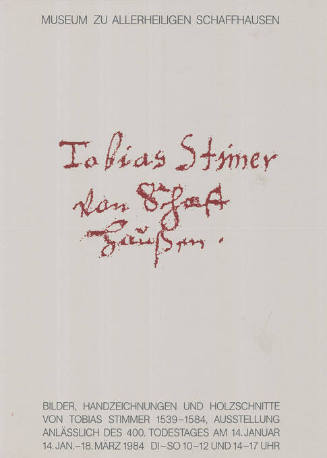 MUSEUM ZU ALLERHEILIGEN SCHAFFHAUSEN
Tobias Stimer
von Schaff
haußen.
BILDER, HANDZEICHNUNGEN UND HOLZSCHNITTE
VON TOBIAS STIMMER 1539–1584, AUSSTELLUNG
ANLÄSSLICH DES 400. TODESTAGES AM 14. JANUAR
14. JAN.–18. MÄRZ 1984 DI–SO 10–12 UND 14–17 UHR